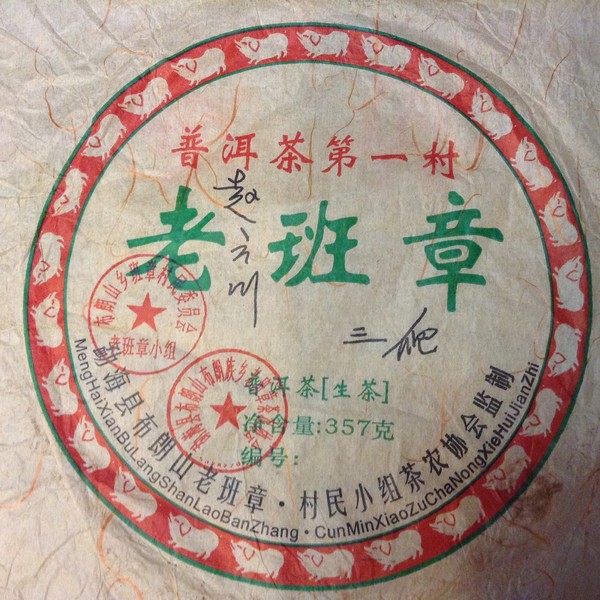 普洱茶第一村
老班章
三爬
布朗山乡班章村民委员会
老班章小组
普洱茶[生茶]
净含量:357克
编号:
勐海县布朗山老班章·村民小组茶农协会监制
MengHaiXianBuLangShanLaoBanZhang·CunMinXiaoZuChaNongXieHuiJianZhi